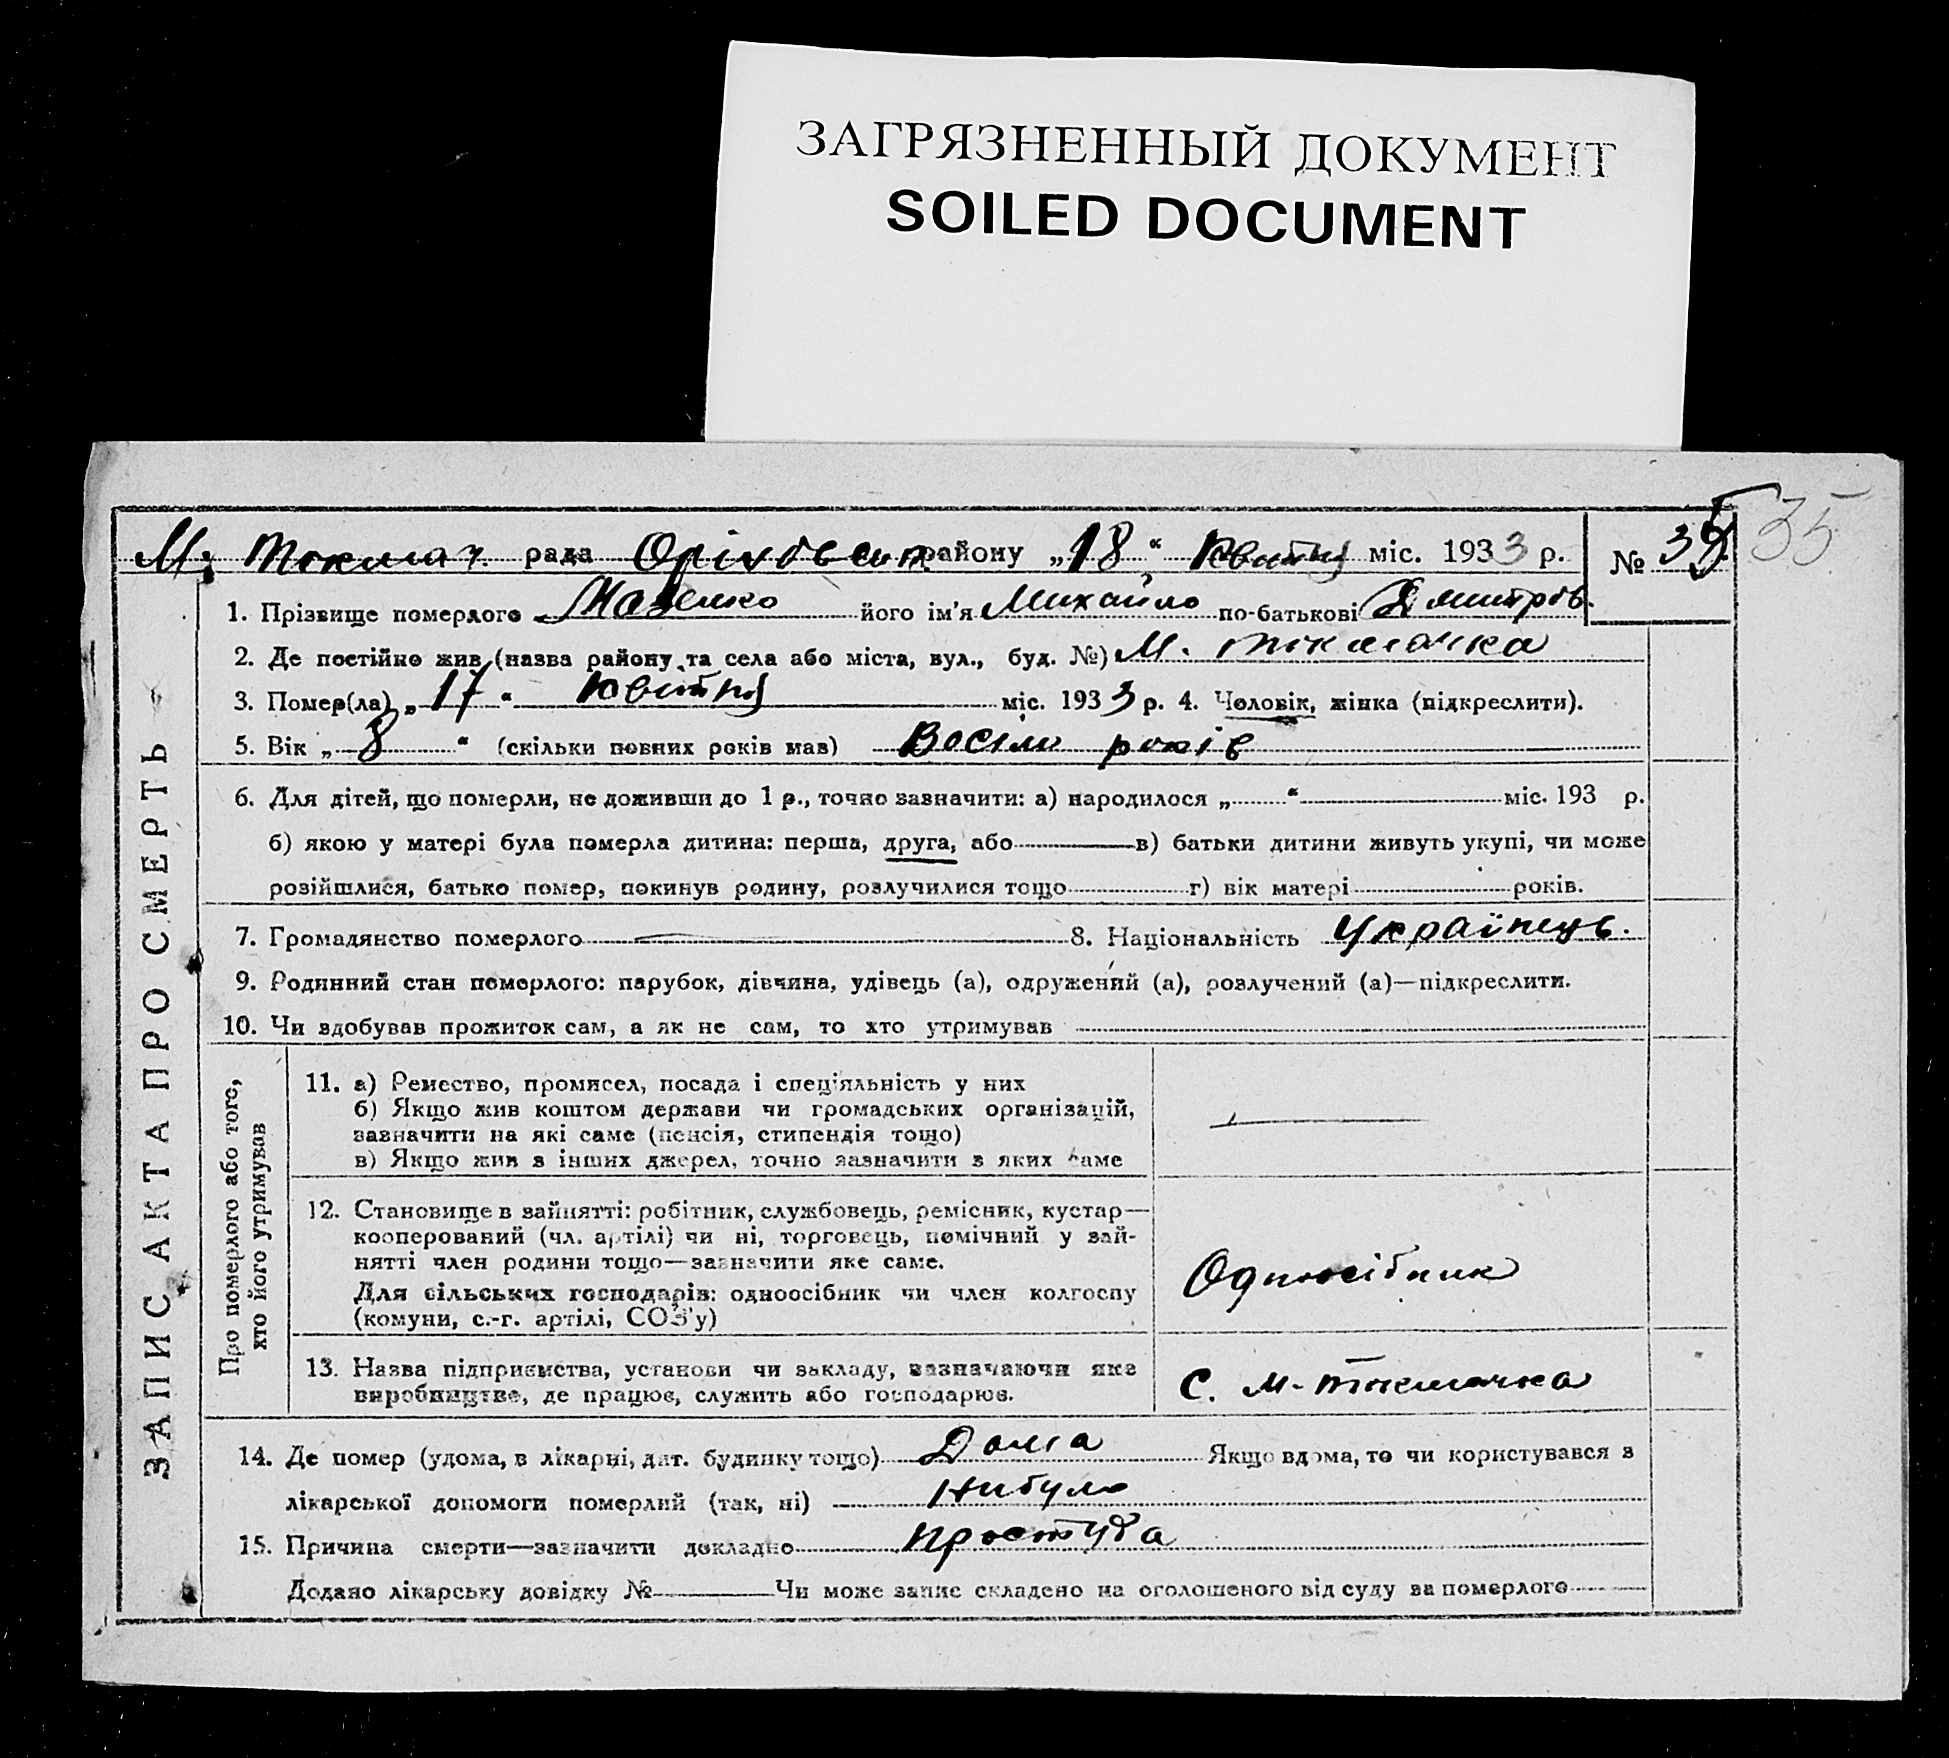 ЗАГРЯЗНЕННЫЙ ДОКУМЕНТ
SOILED DOCUMENT
М. Токмач. рада Оріховськ району „18“ Квітня міс. 1933 р. № 35 35
1. Прізвище померлого Мазенко його ім'я Михайло по-батькові Дмитров.
2. Де постійно жив (назва району та села або міста, вул., буд. №) М. Токмачка
3. Помер(ла) „17“ Квітня міс. 1933 р. 4. Чоловік, жінка (підкреслити).
5. Вік „8“ (скільки повних років мав) Восім років
6. Для дітей, що померли, не доживши до 1 р., точно зазначити: а) народилося „ “ міс. 193 р.
б) якою у матері була померла дитина: перша, друга, або в) батьки дитини живуть укупі, чи може
розійшлися, батько помер, покинув родину, розлучилися тощо г) вік матері років.
7. Громадянство померлого 8. Національність Українець.
9. Родинний стан померлого: парубок, дівчина, удівець (а), одружений (а), розлучений (а)—підкреслити.
10. Чи здобував прожиток сам, а як не сам, то хто утримував
ЗАПИС АКТА ПРО СМЕРТЬ
Про померлого або того,
хто його утримував
11. а) Ремество, промисел, посада і спеціяльність у них
б) Якщо жив коштом держави чи громадських організацій,
зазначити на які саме (пенсія, стипендія тощо)
в) Якщо жив з інших джерел, точно зазначити з яких саме
12. Становище в зайнятті: робітник, службовець, ремісник, кустар—
кооперований (чл. артілі) чи ні, торговець, помічний у зай-
нятті член родини тощо—зазначити яке саме.
Для сільських господарів: одноосібник чи член колгоспу
(комуни, с.-г. артілі, СОЗ'у)
Одноосібник
13. Назва підприємства, установи чи закладу, зазначаючи яке
виробництво, де працює, служить або господарює.
С. М-Токмачка
14. Де помер (удома, в лікарні, дит. будинку тощо) Дома Якщо вдома, то чи користувався з
лікарської допомоги померлий (так, ні) Нибуло
15. Причина смерти—зазначити докладно простуда
Додано лікарську довідку № Чи може запис складено на оголошеного від суду за померлого